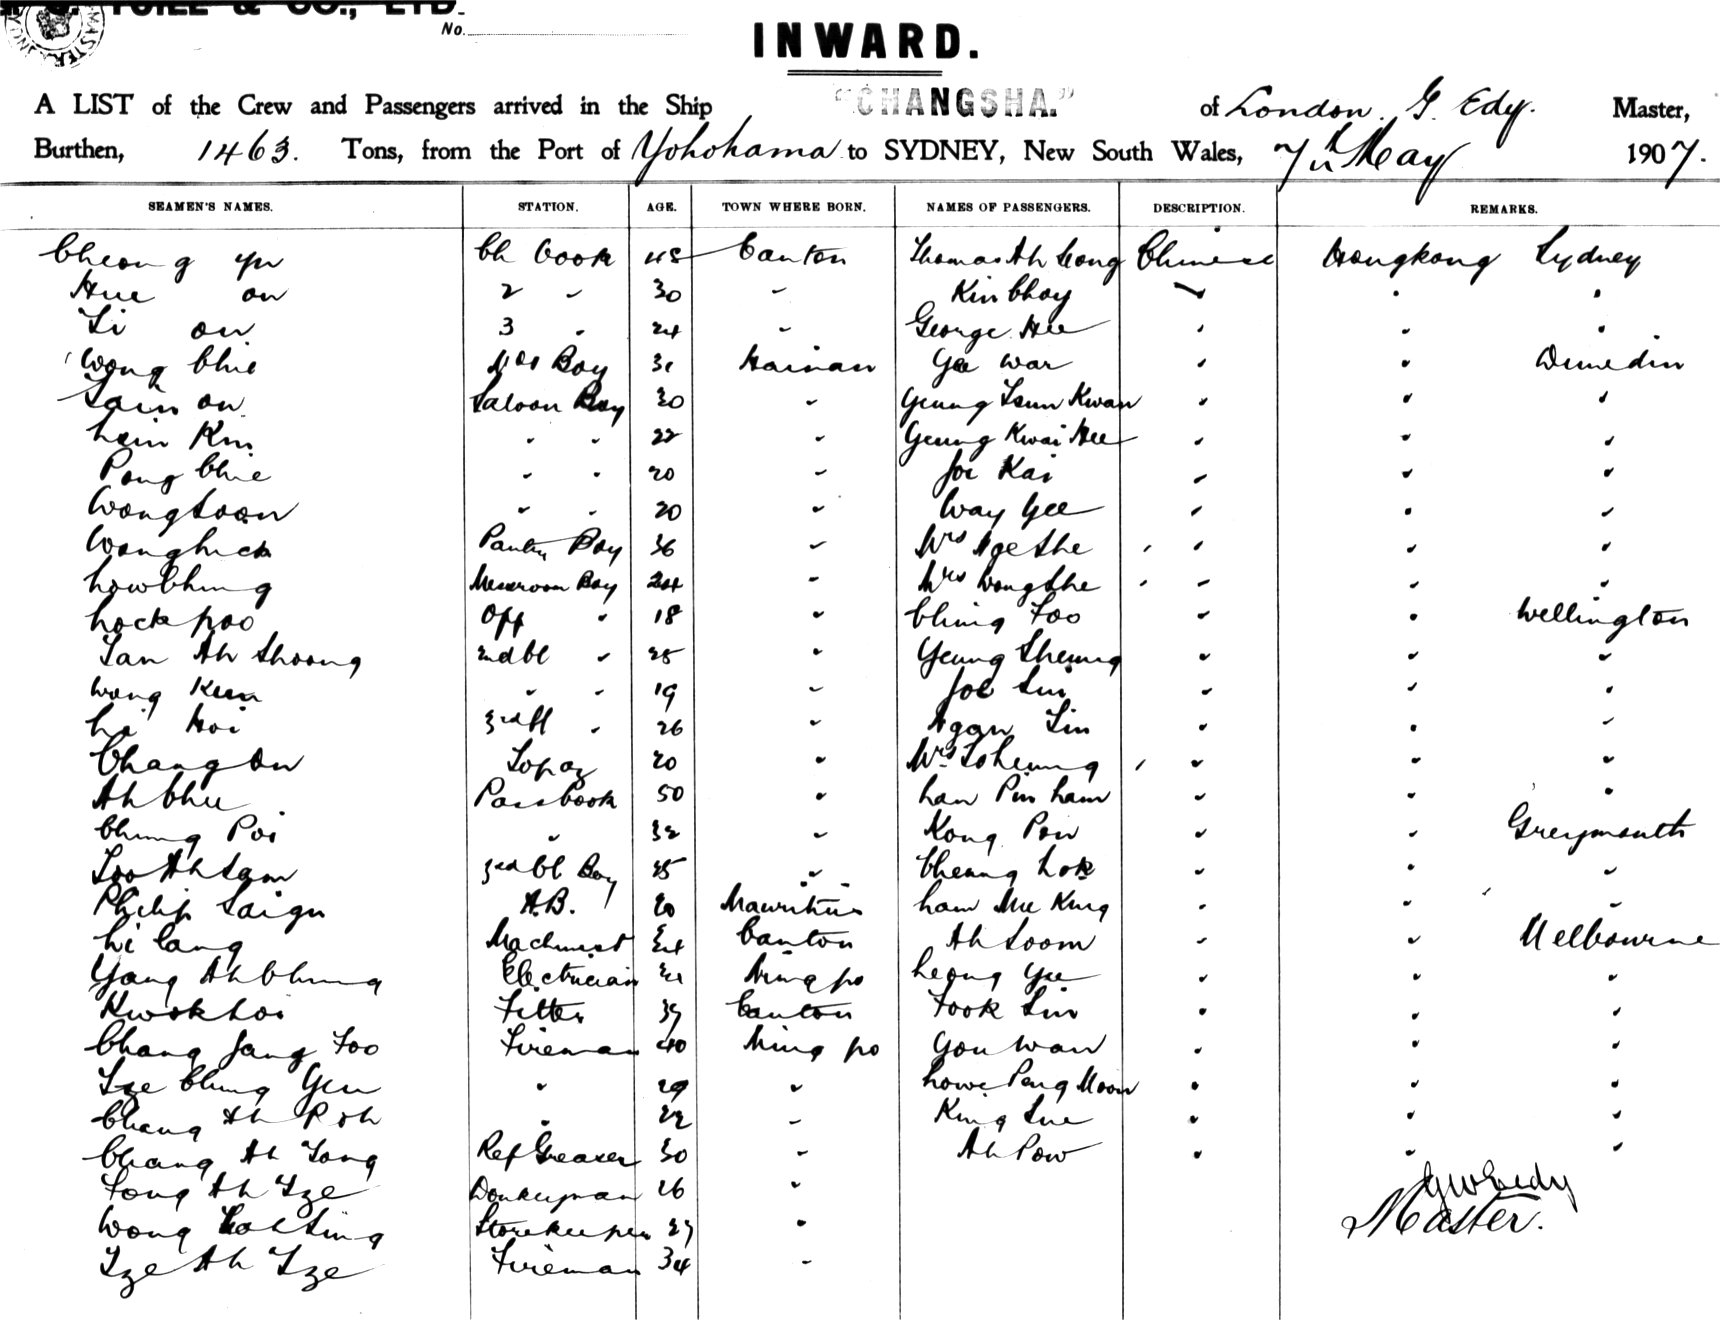 & CO., LTD.
No.
INWARD.
A LIST of the Crew and Passengers arrived in the Ship "CHANGSHA." of London. G. Edy. Master,
Burthen, 1463. Tons, from the Port of Yokohama to SYDNEY, New South Wales, 7th May 1907.
SEAMEN'S NAMES. STATION. AGE. TOWN WHERE BORN. NAMES OF PASSENGERS. DESCRIPTION. REMARKS.
Cheong Yu Ch Cook 48 Canton Thomas Ah Leong Chinese Hongkong Sydney
Hue on 2 " 30 " Kin Choy " " "
Li on 3 " 24 " George Hee " " "
Wong Chie Boy 31 Hainan Gee War " " Dunedin
on Saloon Boy 30 " Yeung Kwan " " "
Kin " " 22 " Yeung Kwai Hee " " "
Pong Chie " " 20 " Joe Kai " " "
Wong Soon " " 20 " Way Gee " " "
Wong Pantry Boy 36 " Mrs She " " "
Low Ching Messroom Boy 24 " Mrs Wong She " " "
Lock poo Off " 18 " Ching Foo " " Wellington
Tan Ah Shoong 2nd Cl " 25 " Yeung Sheung " " "
Wong Kun " " 19 " Joe Sui " " "
Hoi 3rd Cl " 26 " Lin " " "
Chang On Topaz 20 " Mrs " " "
Ah Chee Pass Cook 50 " Lam Pin Lam " " "
Chung Poi " 32 " Kong Pow " " Greymouth
Ah Sam 3rd Cl Boy 25 " Cheung Lok " " "
Philip A.B. 20 Mauritius Lam Mee King " " "
Li Lang Machinist 24 Canton Ah Loom " " Melbourne
Yang Ah Chung Electrician Ningpo Leong Yee " " "
Kwok Loi Fitter 39 Canton Fook Lin " " "
Chang Jang Foo Fireman 40 Ning po You Wan " " "
Tze Chung Yeu " 29 " Lowe Pang Moon " " "
Chang Ah Poh " 22 " King Sue " " "
Chang Ah Tong Ref Greaser 30 " Ah Pow " " "
Tong Ah Tze Donkeyman 26 " G W Eedy
Wong Sing Storekeeper 27 " Master.
Tze Ah Tze Fireman 34 "